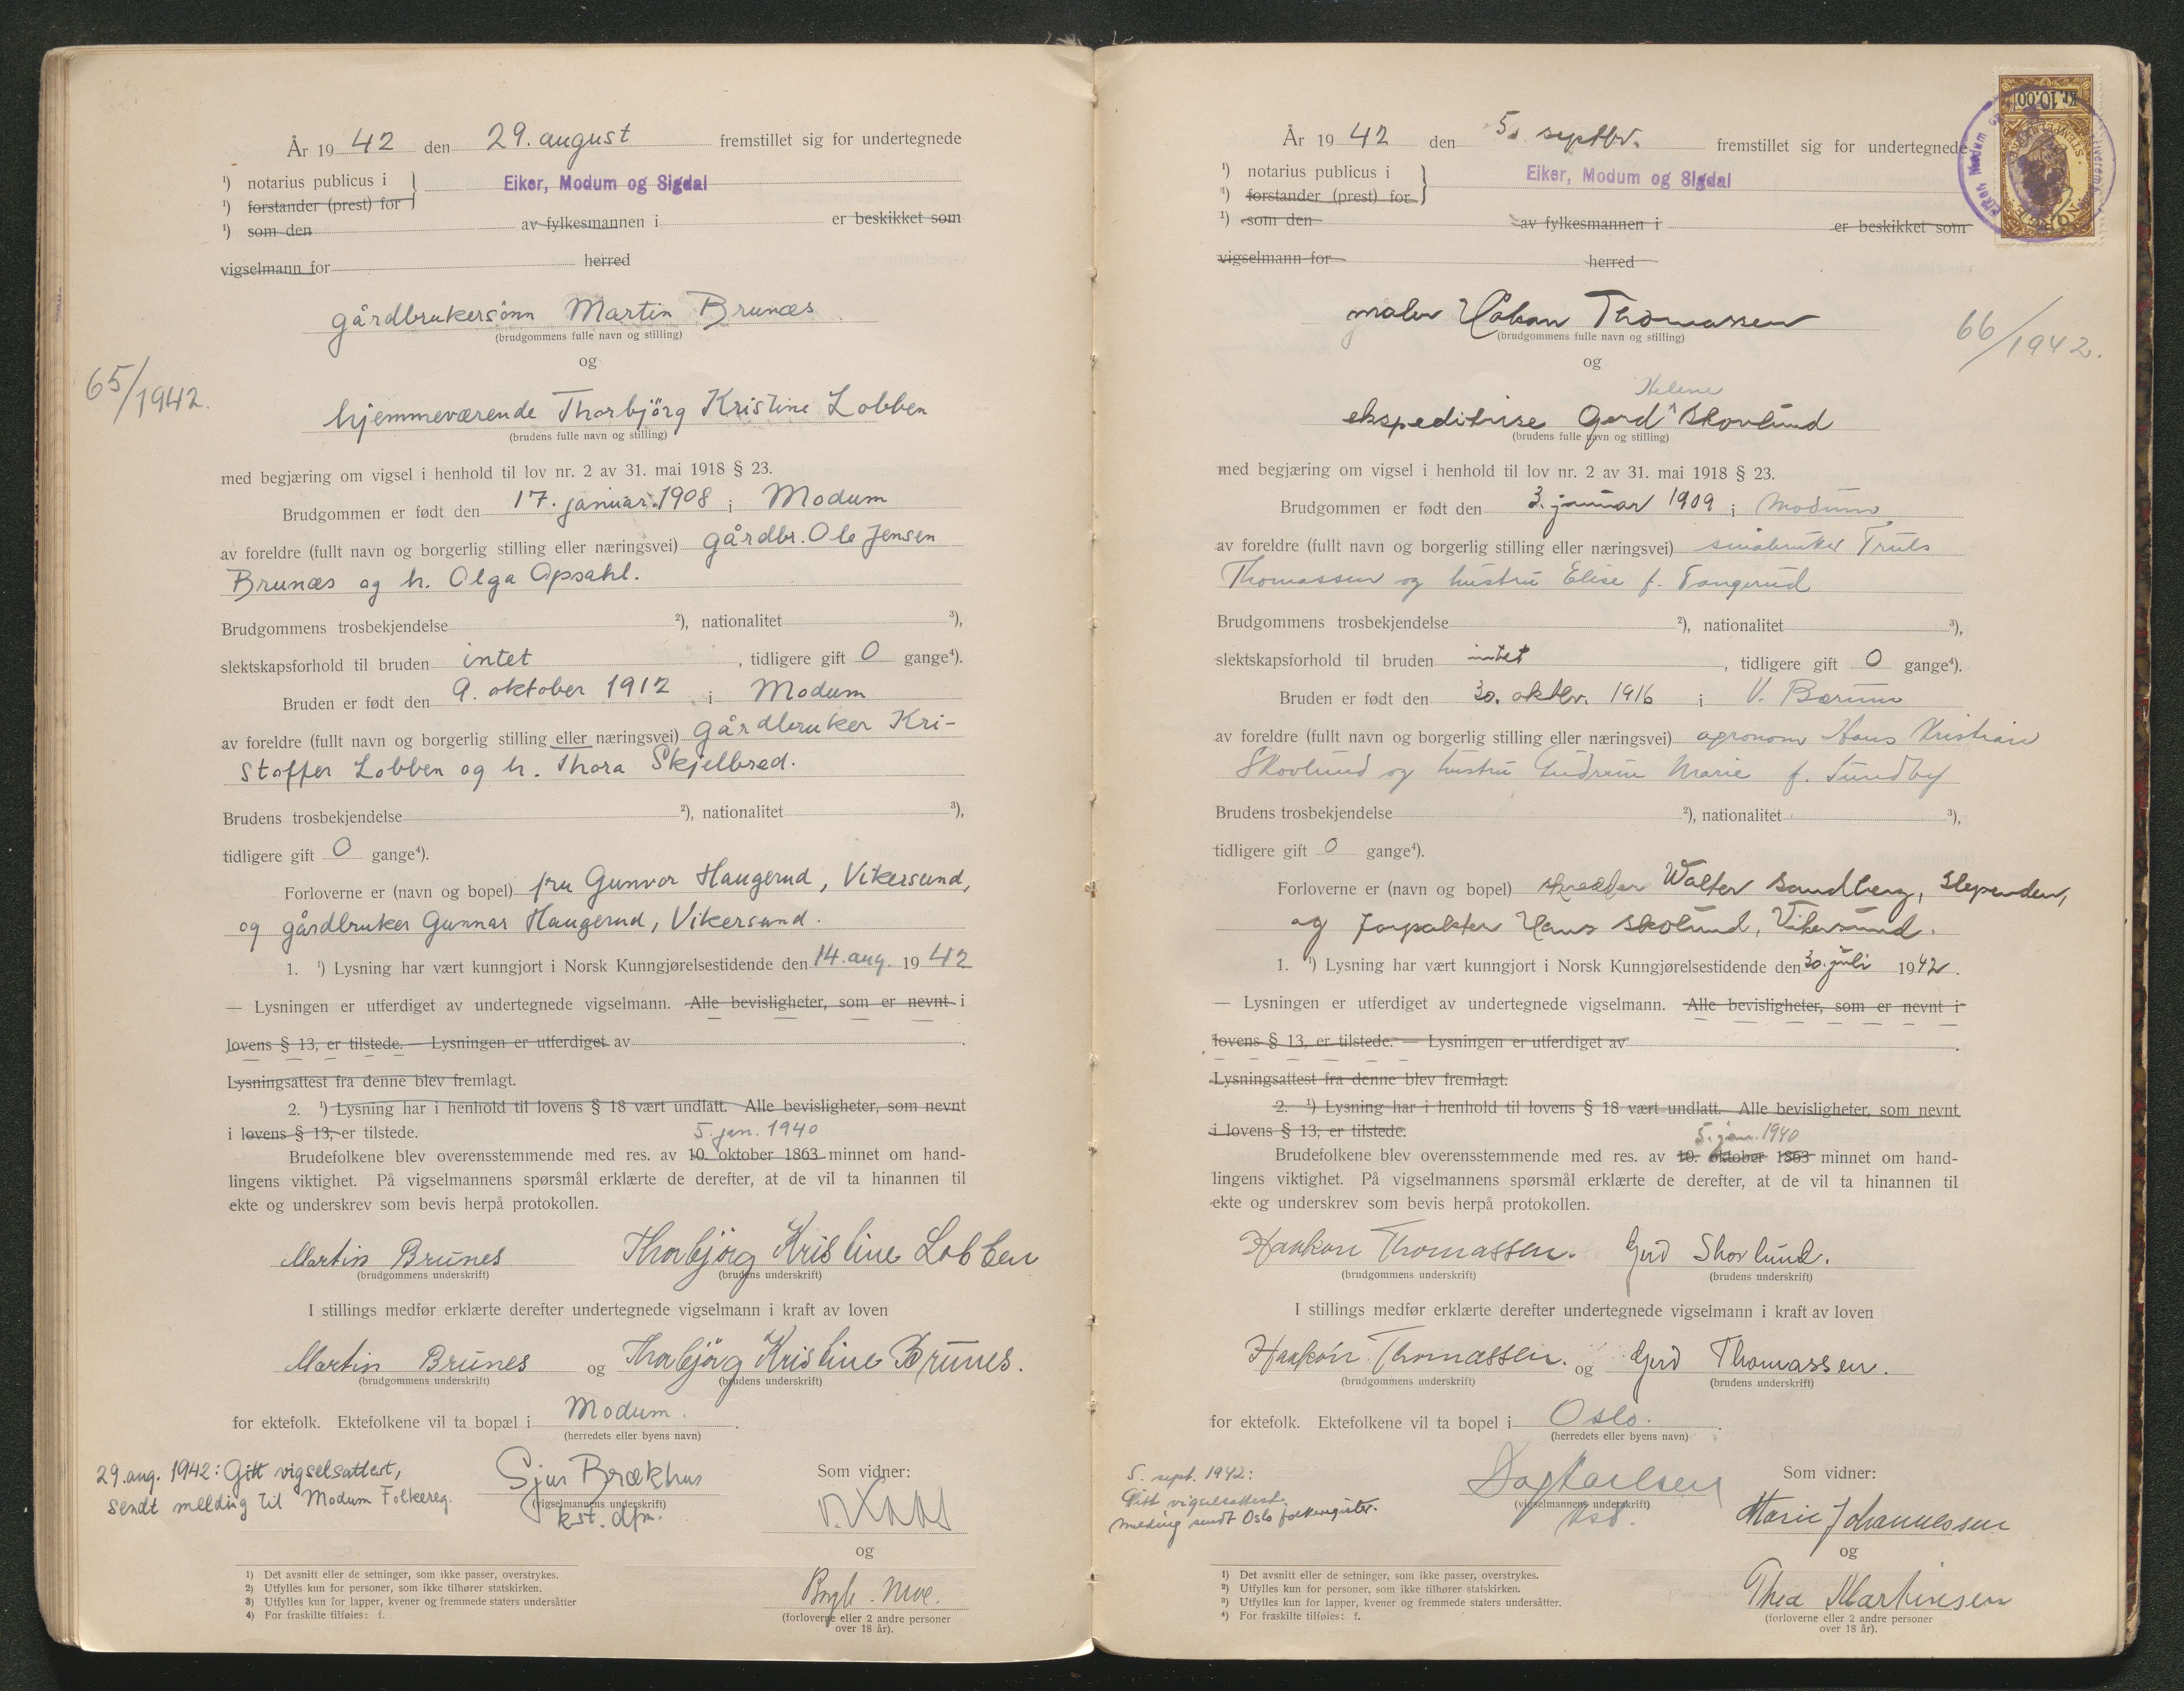 År 19 42 den 29. august fremstillet sig for undertegnede
¹) notarius publicus i } Eiker, Modum og Sigdal
¹) forstander (prest) for
¹) som den av fylkesmannen i er beskikket som
vigselmann for herred
gårdbrukersønn Martin Brunæs
(brudgommens fulle navn og stilling)
og
65/1942.
hjemmeværende Thorbjörg Kristine Lobben
(brudens fulle navn og stilling)
med begjæring om vigsel i henhold til lov nr. 2 av 31. mai 1918 § 23.
Brudgommen er født den 17. januar. 1908 i Modum
av foreldre (fullt navn og borgerlig stilling eller næringsvei) gårdbr. Ole Jensen
Brunæs og h. Olga Opsahl.
Brudgommens trosbekjendelse ²), nationalitet ³),
slektskapsforhold til bruden intet , tidligere gift 0 gange⁴).
Bruden er født den 9. oktober 1912 i Modum
av foreldre (fullt navn og borgerlig stilling eller næringsvei) gårdbruker Kri-
stoffer Lobben og h. Thora Skjelbred.
Brudens trosbekjendelse ²), nationalitet ³),
tidligere gift 0 gange⁴).
Forloverne er (navn og bopel) fru Gunvor Haugerud, Vikersund,
og gårdbruker Gunnar Haugerud, Vikersund.
1. ¹) Lysning har vært kunngjort i Norsk Kunngjørelsestidende den 14. aug. 19 42
— Lysningen er utferdiget av undertegnede vigselmann. Alle bevisligheter, som er nevnt i
lovens § 13, er tilstede. — Lysningen er utferdiget av .
Lysningsattest fra denne blev fremlagt.
2. ¹) Lysning har i henhold til lovens § 18 vært undlatt. Alle bevisligheter, som nevnt
i lovens § 13, er tilstede. 5. jan. 1940
Brudefolkene blev overensstemmende med res. av 10. oktober 1863 minnet om hand-
lingens viktighet. På vigselmannens spørsmål erklærte de derefter, at de vil ta hinannen til
ekte og underskrev som bevis herpå protokollen.
Martin Brunes Thorbjörg Kristine Lobben
(brudgommens underskrift) (brudens underskrift)
I stillings medfør erklærte derefter undertegnede vigselmann i kraft av loven
Martin Brunes og Thorbjörg Kristine Brunes.
(brudgommens underskrift) (brudens underskrift)
for ektefolk. Ektefolkene vil ta bopæl i Modum.
(herredets eller byens navn)
29. aug. 1942: Gitt vigselsattest,
sendt melding til Modum Folkereg.
Sjur Brækhus
(vigselmannens underskrift)
kst. dfm.
Som vidner:
og
(forloverne eller 2 andre personer
over 18 år).
1) Det avsnitt eller de setninger, som ikke passer, overstrykes.
2) Utfylles kun for personer, som ikke tilhører statskirken.
3) Utfylles kun for lapper, kvener og fremmede staters undersåtter
4) For fraskilte tilføies: f.
Kr. 10.00
År 19 42 den 5. septbr. fremstillet sig for undertegnede
¹) notarius publicus i } Eiker, Modum og Sigdal
¹) forstander (prest) for
¹) som den av fylkesmannen i er beskikket som
vigselmann for herred
maler Håkon Thomassen
(brudgommens fulle navn og stilling)
66/1942.
og
Helene
ekspeditrise Gerd ^ Skovlund
(brudens fulle navn og stilling)
med begjæring om vigsel i henhold til lov nr. 2 av 31. mai 1918 § 23.
Brudgommen er født den 3. januar 1909 i Modum
av foreldre (fullt navn og borgerlig stilling eller næringsvei) småbruker Truls
Thomassen og hustru Elise f. Tangerud
Brudgommens trosbekjendelse ²), nationalitet ³),
slektskapsforhold til bruden intet , tidligere gift 0 gange⁴).
Bruden er født den 30. oktbr. 1916 i V. Bærum
av foreldre (fullt navn og borgerlig stilling eller næringsvei) agronom Hans Kristian
Skovlund og hustru Gudrun Marie f. Sundby
Brudens trosbekjendelse ²), nationalitet ³),
tidligere gift 0 gange⁴).
Forloverne er (navn og bopel) skredder Walter Sandberg, Slependen,
og forpakter Hans Skolund, Vikersund.
1. ¹) Lysning har vært kunngjort i Norsk Kunngjørelsestidende den 30. juli 1942.
— Lysningen er utferdiget av undertegnede vigselmann. Alle bevisligheter, som er nevnt i
lovens § 13, er tilstede. — Lysningen er utferdiget av .
Lysningsattest fra denne blev fremlagt.
2. ¹) Lysning har i henhold til lovens § 18 vært undlatt. Alle bevisligheter, som nevnt
i lovens § 13, er tilstede. 5. jan. 1940
Brudefolkene blev overensstemmende med res. av 10. oktober 1863 minnet om hand-
lingens viktighet. På vigselmannens spørsmål erklærte de derefter, at de vil ta hinannen til
ekte og underskrev som bevis herpå protokollen.
Haakon Thomassen. Gerd Skovlund.
(brudgommens underskrift) (brudens underskrift)
I stillings medfør erklærte derefter undertegnede vigselmann i kraft av loven
Haakon Thomassen. og Gerd Thomassen.
(brudgommens underskrift) (brudens underskrift)
for ektefolk. Ektefolkene vil ta bopel i Oslo.
(herredets eller byens navn)
5. sept. 1942:
Gitt vigselsattest.
melding sendt Oslo folkeregister.
Dag Karlsen
(vigselmannens underskrift)
Som vidner:
Marie Johannessen
og
Thea Martinsen
(forloverne eller 2 andre personer
over 18 år).
1) Det avsnitt eller de setninger, som ikke passer, overstrykes.
2) Utfylles kun for personer, som ikke tilhører statskirken.
3) Utfylles kun for lapper, kvener og fremmede staters undersåtter.
4) For fraskilte tilføies: f.